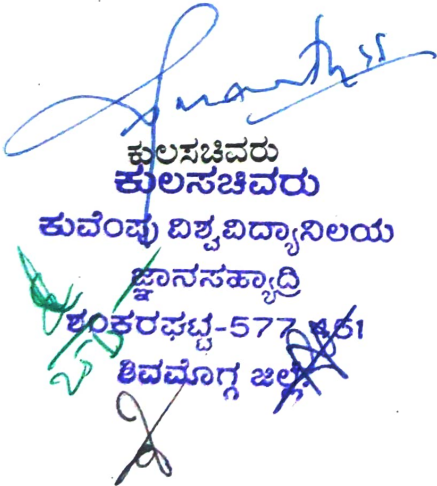 ಕುಲಸಚಿವರು
ಕುಲಸಚಿವರು
ಕುವೆಂಪು ವಿಶ್ವವಿದ್ಯಾನಿಲಯ
ಜ್ಞಾನಸಹ್ಯಾದ್ರಿ
ಶಂಕರಘಟ್ಟ-577 451
ಶಿವಮೊಗ್ಗ ಜಿಲ್ಲೆ